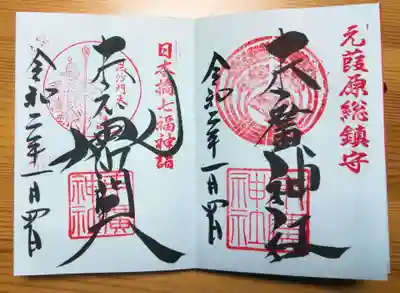 元葭原総鎮守
末廣神社
令和二年一月四日
日本橋七福神詣
毘沙門天
令和二年一月四日